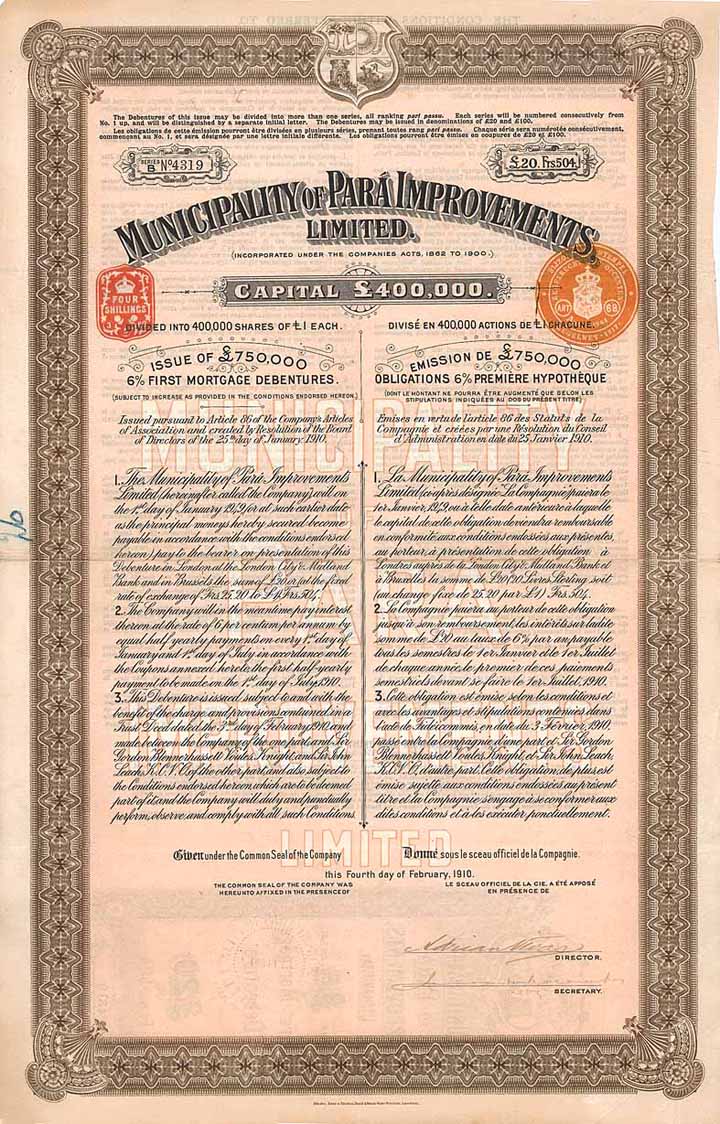 The Debentures of this issue may be divided into more than one series, all ranking pari passu. Each series will be numbered consecutively from
No. 1 up, and will be distinguished by a separate initial letter. The Debentures may be issued in denominations of £20 and £100.
Les obligations de cette émission pourront être divisées en plusieurs séries, prenant toutes rang pari passu. Chaque série sera numérotée consécutivement,
commençant au No. 1, et sera désignée par une lettre initiale différente. Les obligations pourront être émises en coupures de £20 et £100.
SERIES B No 4319
£20. Frs 504.
MUNICIPALITY OF PARÁ IMPROVEMENTS,
LIMITED.
(INCORPORATED UNDER THE COMPANIES ACTS, 1862 TO 1900.)
CAPITAL £400,000.
FOUR
SHILLINGS
ART 68
DIVIDED INTO 400,000 SHARES OF £1 EACH.
ISSUE OF £750,000
6% FIRST MORTGAGE DEBENTURES.
(SUBJECT TO INCREASE AS PROVIDED IN THE CONDITIONS ENDORSED HEREON.)
Issued pursuant to Article 66 of the Company's Articles
of Association and created by Resolution of the Board
of Directors of the 25th day of January 1910.
1. The Municipality of Pará Improvements
Limited (hereinafter called the Company) will on
the 1st day of January 1942, (or at such earlier date
as the principal moneys hereby secured become
payable in accordance with the conditions endorsed
hereon) pay to the bearer on presentation of this
Debenture in London at the London City & Midland
Bank and in Brussels the sum of £20 or (at the fixed
rate of exchange of Frs 25.20 to £1) Frs 504.
2. The Company will in the meantime pay interest
thereon at the rate of 6 per centum per annum by
equal half yearly payments on every 1st day of
January and 1st day of July in accordance with
the Coupons annexed hereto, the first half-yearly
payment to be made on the 1st day of July, 1910.
3. This Debenture is issued subject to and with the
benefit of the charge and provisions contained in a
Trust Deed dated the 3rd day of February, 1910 and
made between the Company of the one part, and Sir
Gordon Blennerhassett Voules, Knight, and Sir John
Leach, K.C.V.O. of the other part, and also subject to
the Conditions endorsed hereon, which are to be deemed
part of it and the Company will duly and punctually
perform, observe and comply with all such Conditions.
DIVISÉ EN 400,000 ACTIONS DE £1 CHACUNE.
EMISSION DE £750,000
OBLIGATIONS 6% PREMIÈRE HYPOTHÈQUE
(DONT LE MONTANT NE POURRA ÊTRE AUGMENTÉ QUE SELON LES
STIPULATIONS INDIQUÉES AU DOS DU PRÉSENT TITRE)
Emises en vertu de l'article 66 des Statuts de la
Compagnie et créées par une Résolution du Conseil
d'Administration en date du 25 Janvier 1910.
1. La Municipality of Pará Improvements
Limited (ci-après désignée "La Compagnie") paiera le
1er Janvier, 1942, ou à telle date antérieure à laquelle
le capital de cette obligation deviendra remboursable
en conformité aux conditions endossées aux présentes,
au porteur, à présentation de cette obligation à
Londres auprès de la London City & Midland Bank et
à Bruxelles la somme de £20 (20 Livres Sterling soit
(au change fixe de 25.20 par £1) Frs 504.
2. La Compagnie paiera au porteur de cette obligation
jusqu'à son remboursement, les intérêts sur ladite
somme de £20 au taux de 6% par an payable
tous les semestres le 1er Janvier et le 1er Juillet
de chaque année, le premier de ces paiements
semestriels devant se faire le 1er Juillet, 1910.
3. Cette obligation est émise selon les conditions et
avec les avantages et stipulations contenües dans
l'acte de Fidéicommis, en date du 3 Février, 1910,
passé entre la Compagnie d'une part et Sir Gordon
Blennerhassett Voules, Knight, et Sir John Leach,
K.C.V.O., d'autre part. Cette obligation, de plus est
émise sujette aux conditions endossées au présent
titre et la Compagnie s'engage à se conformer aux
dites conditions et à les exécuter ponctuellement.
MUNICIPALITY
LIMITED
Given under the Common Seal of the Company
Donné sous le sceau officiel de la Compagnie.
this Fourth day of February, 1910.
THE COMMON SEAL OF THE COMPANY WAS
HEREUNTO AFFIXED IN THE PRESENCE OF
LE SCEAU OFFICIEL DE LA CIE. A ÉTÉ APPOSÉ
EN PRÉSENCE DE
DIRECTOR.
SECRETARY.